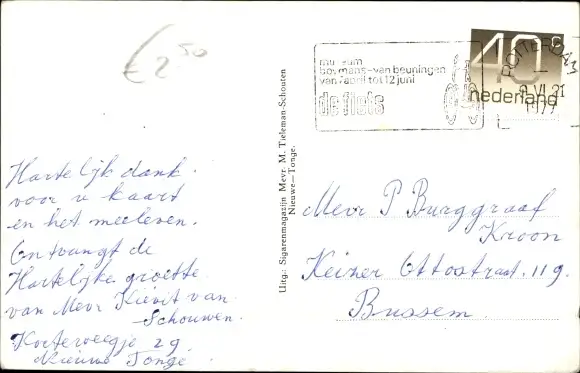 €2,50
museum
boymans-van beuningen
van 7 april tot 12 juni
de fiets
ROTTERDAM
9 VI 21
1977
40c
nederland
Hartelijk dank
voor u kaart
en het meeleven.
Ontvangt de
Hartelijke groette
van Mevr Kievit van
Schouwen.
Korteweegje 29
Nieuwe Tonge
Uitg.: Sigarenmagazijn Mevr. M. Tieleman-Schouten
Nieuwe-Tonge.
Mevr P Burggraaf
Kroon
Keizer Ottostraat. 119.
Bussem